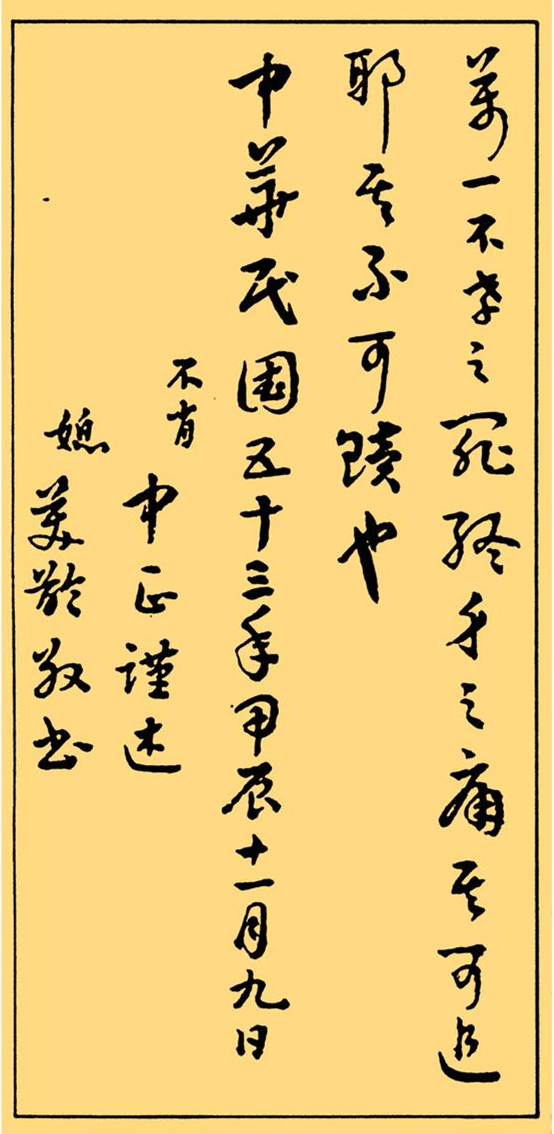 萬一不孝之罪終身之痛其可追
耶其不可贖也
中華民國五十三年甲辰十一月九日
不肖中正謹述
媳美齡敬書